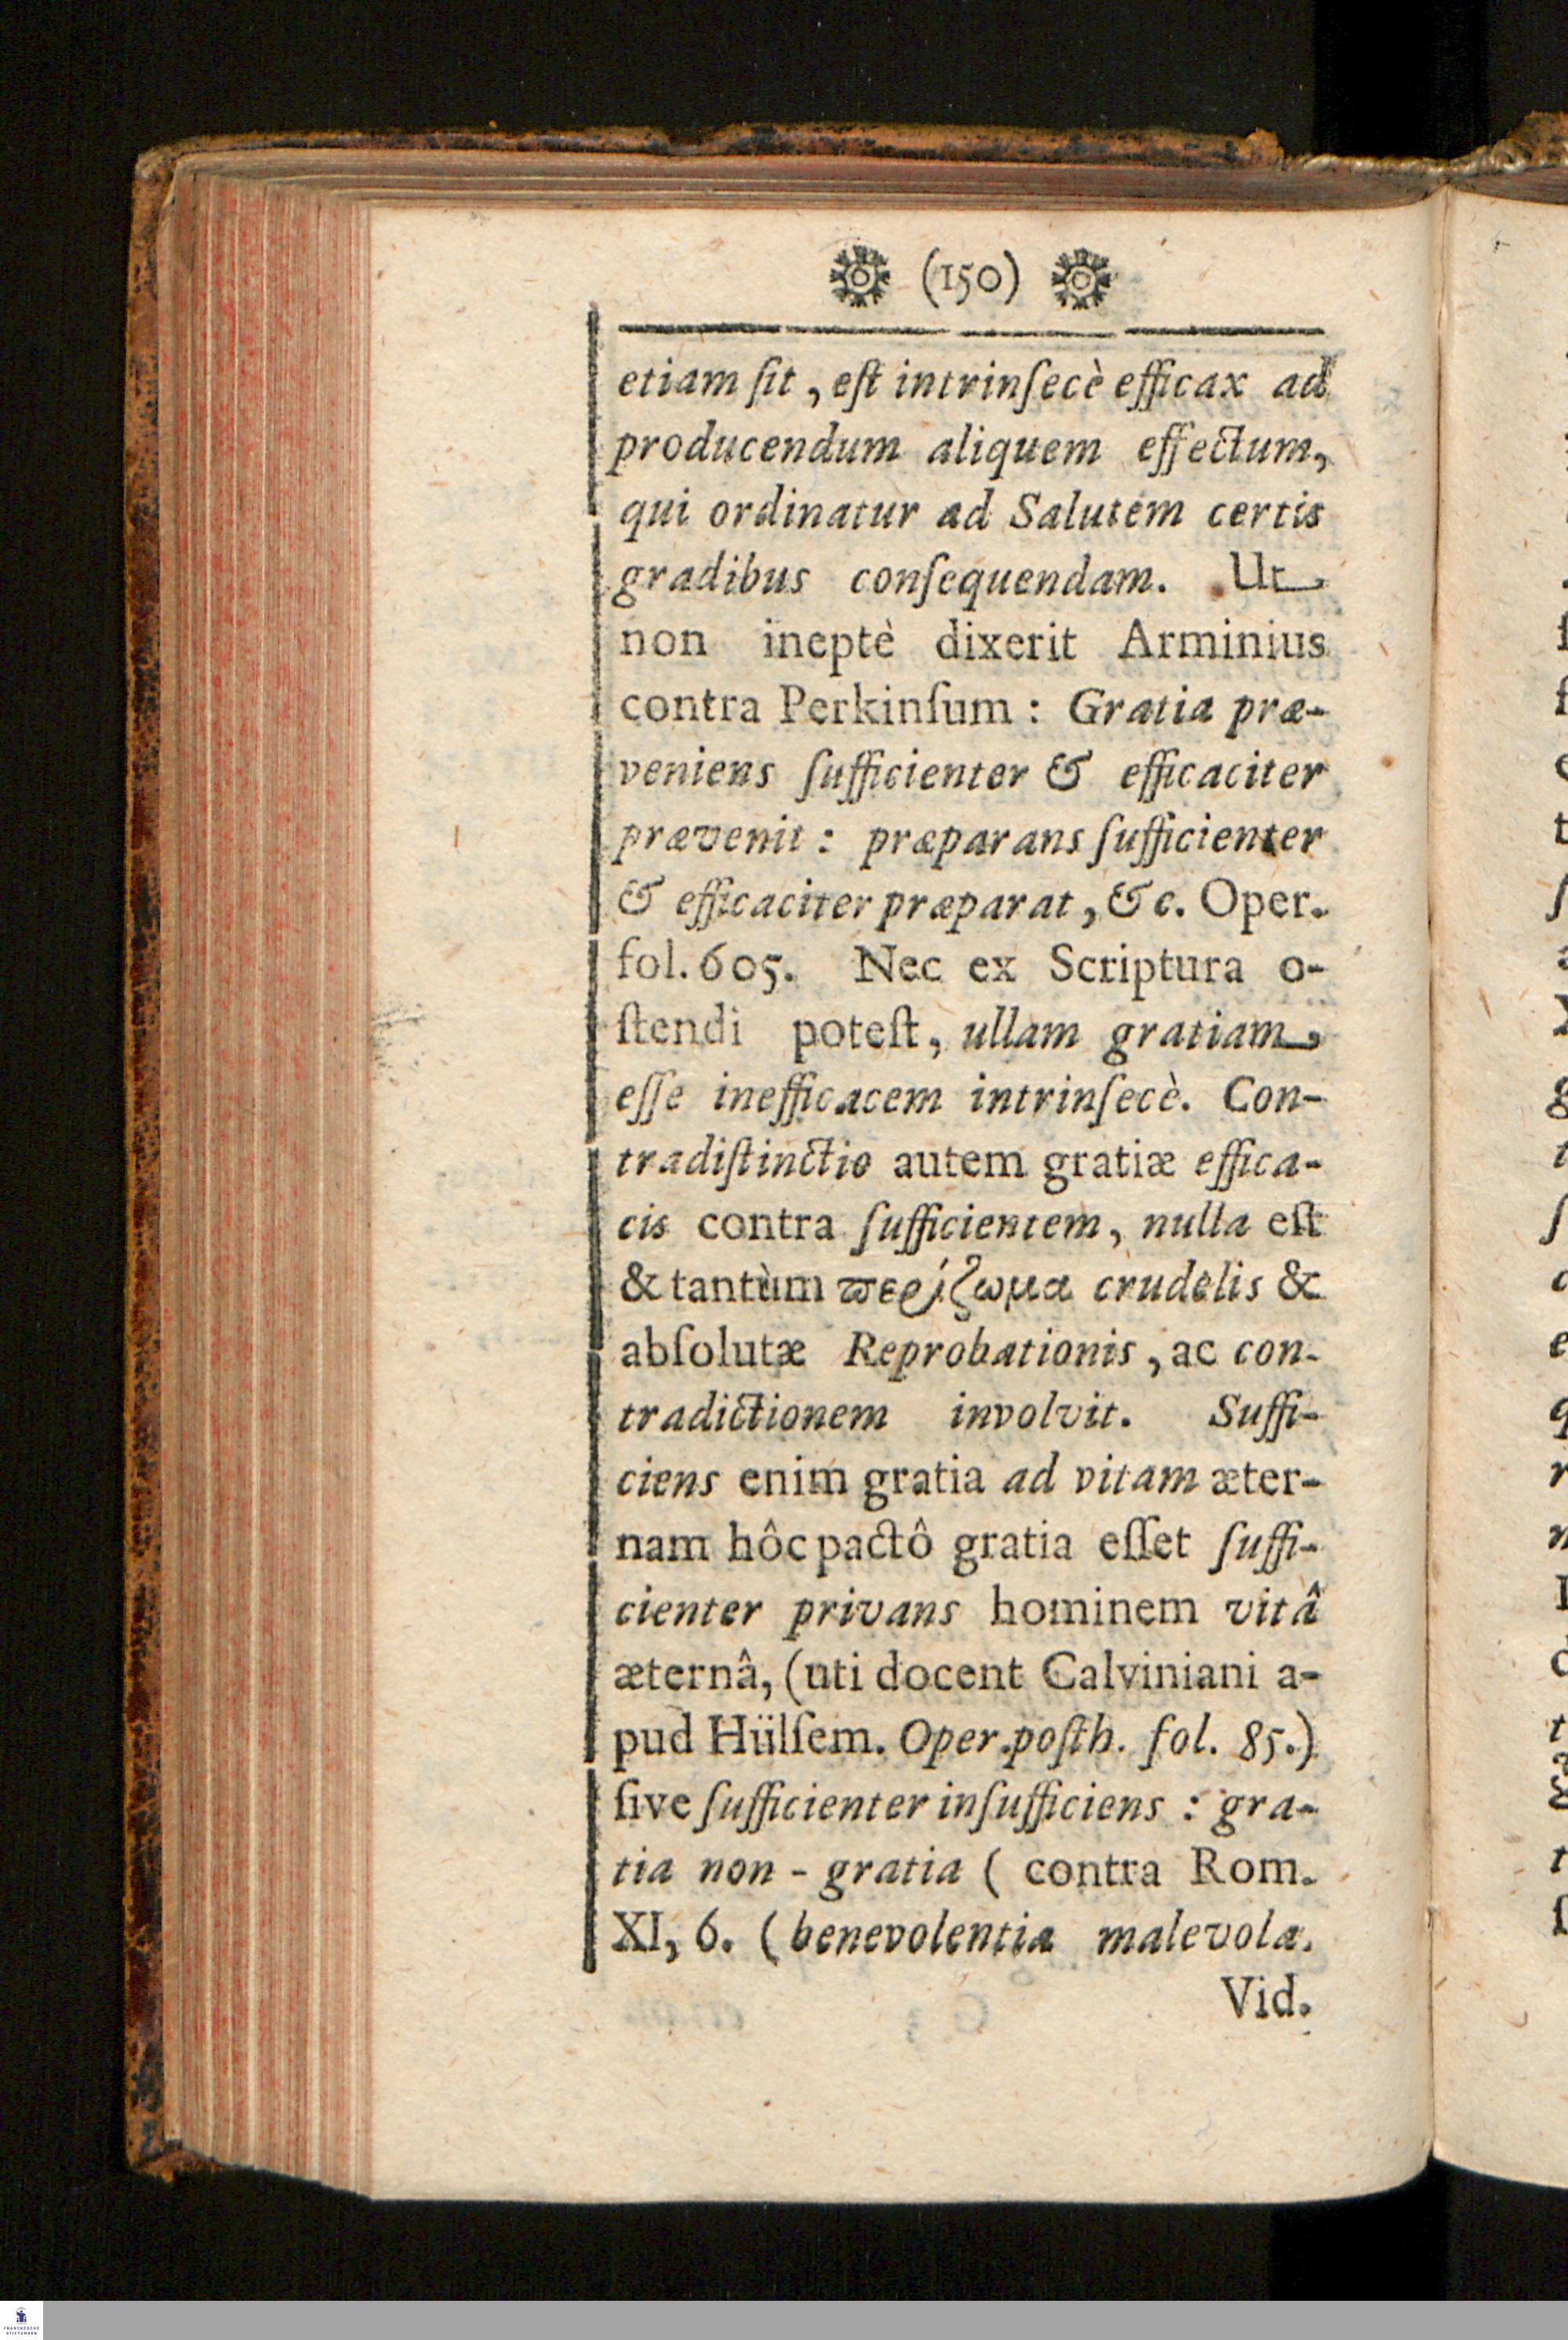 (150)
etiam ſit, eſt intrinſecè efficax ad
producendum aliquem effectum,
qui ordinatur ad Salutem certis
gradibus conſequendam. Ut
non ineptè dixerit Arminius
contra Perkinſum: Gratia præ-
veniens ſufficienter & efficaciter
prævenit: præparans ſufficienter
& efficaciter præparat, &c. Oper.
fol. 605. Nec ex Scriptura o-
ſtendi poteſt, ullam gratiam
eſſe inefficacem intrinſecè. Con-
tradiſtinctio autem gratiæ effica-
cis contra ſufficientem, nulla eſt
& tantùm ϖερίζωμα crudelis &
abſolutæ Reprobationis, ac con-
tradictionem involvit. Suffi-
ciens enim gratia ad vitam æter-
nam hôc pactô gratia eſſet ſuffi-
cienter privans hominem vitâ
æternâ, (uti docent Calviniani a-
pud Hülſem. Oper. poſth. fol. 85.)
ſive ſufficienter inſufficiens: gra-
tia non-gratia ( contra Rom.
XI, 6. ( benevolentia malevola.
Vid.
FRANCKESCHE
STIFTUNGEN